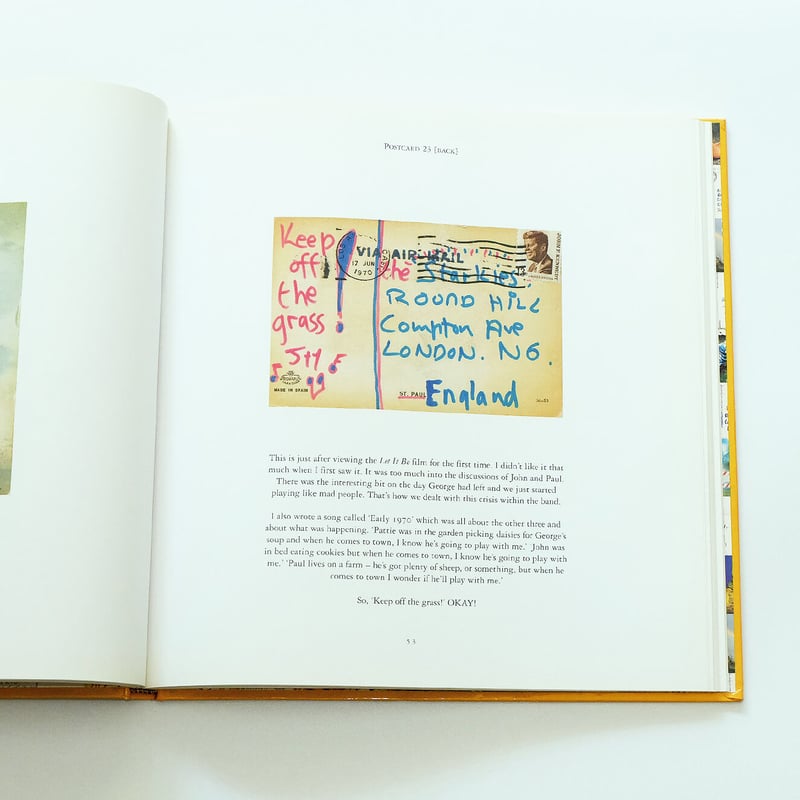 POSTCARD 23 [BACK]
Keep
off
the
grass!
VIA AIR MAIL
17 JUN
1970
JOHN F. KENNEDY
the Starkies.
ROUND HILL
Compton Ave
LONDON. N6.
England
MADE IN SPAIN
ST. PAUL
This is just after viewing the Let It Be film for the first time. I didn't like it that
much when I first saw it. It was too much into the discussions of John and Paul.
There was the interesting bit on the day George had left and we just started
playing like mad people. That's how we dealt with this crisis within the band.
I also wrote a song called 'Early 1970' which was all about the other three and
about what was happening. 'Pattie was in the garden picking daisies for George's
soup and when he comes to town, I know he's going to play with me.' 'John was
in bed eating cookies but when he comes to town, I know he's going to play with
me.' 'Paul lives on a farm – he's got plenty of sheep, or something, but when he
comes to town I wonder if he'll play with me.'
So, 'Keep off the grass!' OKAY!
53